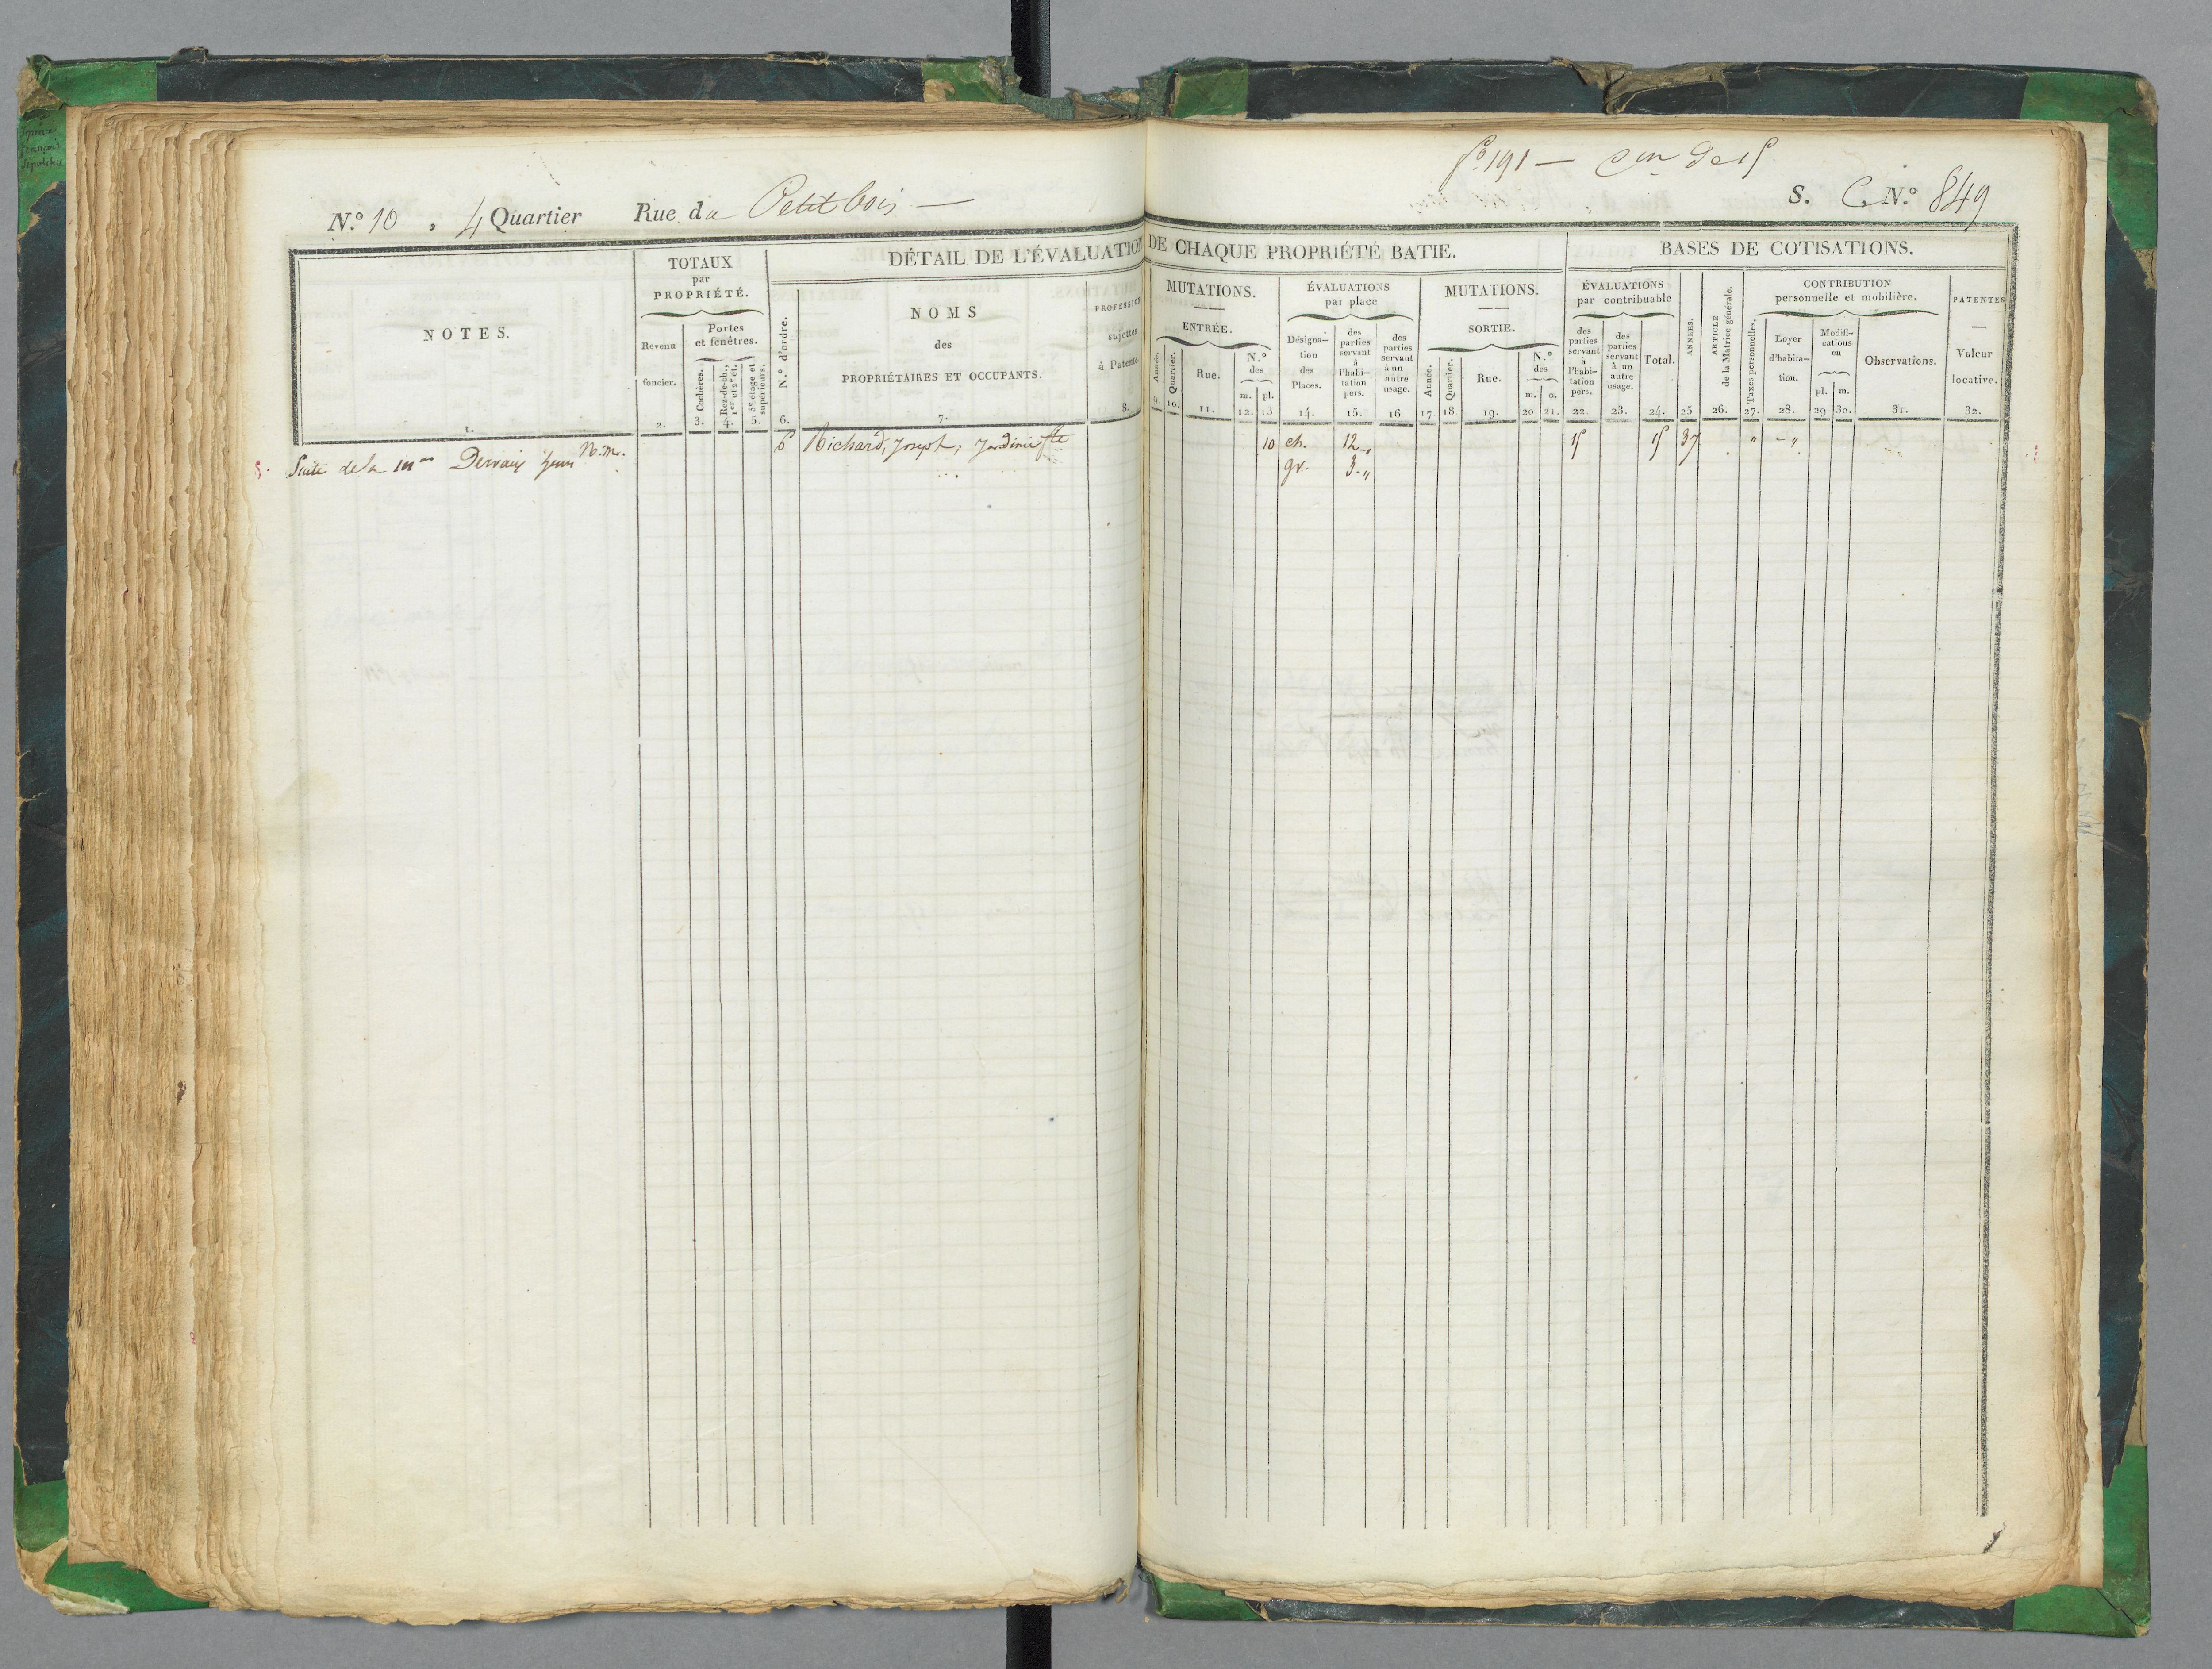 fo 191 —
N.º 10, 4 Quartier Rue du Petit bois —
S. C. N.º 849
DÉTAIL DE L'ÉVALUATION DE CHAQUE PROPRIÉTÉ BATIE.
BASES DE COTISATIONS.
NOTES.
TOTAUX
par
PROPRIÉTÉ.
Revenu
foncier.
Portes
et fenêtres.
Cochères.
Rez-de-ch.,
1er et 2e ét.
3e étage et
supérieurs.
N.º d'ordre.
NOMS
des
PROPRIÉTAIRES ET OCCUPANTS.
PROFESSIONS
sujettes
à Patente.
MUTATIONS.
ENTRÉE.
Année.
Quartier.
Rue.
N.º
des
m. pl.
ÉVALUATIONS
par place
Désigna-
tion
des
Places.
des
parties
servant
à
l'habi-
tation
pers.
des
parties
servant
à un
autre
usage.
MUTATIONS.
SORTIE.
Année.
Quartier.
Rue.
N.º
des
m. o.
ÉVALUATIONS
par contribuable
des
parties
servant
à
l'habi-
tation
pers.
des
parties
servant
à un
autre
usage.
Total.
ANNÉES.
ARTICLE
de la Matrice générale.
CONTRIBUTION
personnelle et mobilière.
Taxes personnelles.
Loyer
d'habita-
tion.
Modifi-
cations
en
pl. m.
Observations.
PATENTES
—
Valeur
locative.
1. 2. 3. 4. 5. 6. 7. 8. 9. 10. 11. 12. 13 14. 15. 16 17 18 19. 20 21. 22. 23. 24. 25 26. 27. 28. 29 30. 31. 32.
6 Richard, Joseph, Jardinier 10 ch. 12 „ 15 15 37 „ - „
Suite de la mon N.m. gr. 3 - „